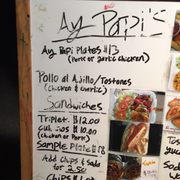 Ay Papi's
Ay Papi Plates $13
(Pork or garlic chicken)
Pollo al Ajillo/Tostones
(Chicken & Garlic)
Sandwiches
Triplet. $12.00
$10.00
Sample Plate $18
Add Chips & Soda
for 2.50
Chips $1.